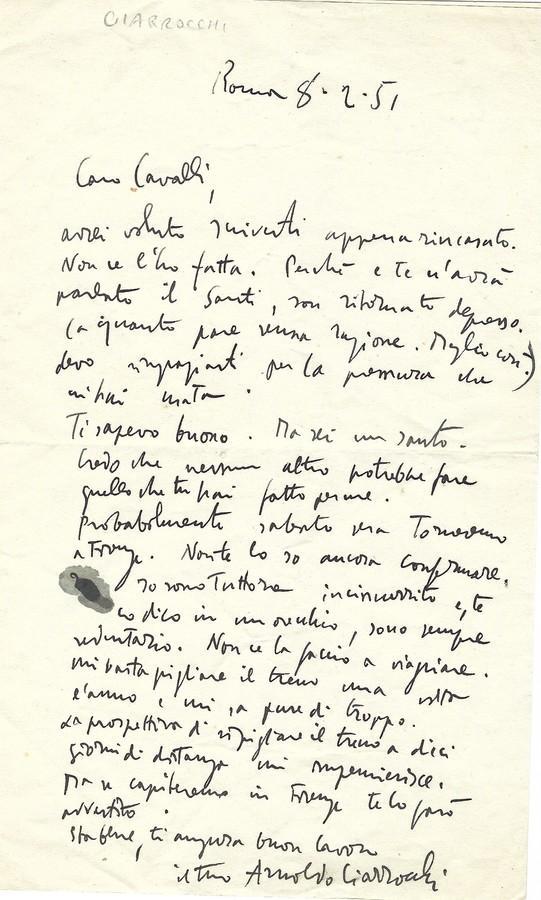 CIARROCCHI
Roma 8-2-51
Caro Cavalli,
avrei voluto scriverti appena rincasato.
Non ce l'ho fatta. Perché e te n'avrà
parlato il Santi, son ritornato depresso.
(a quanto pare senza ragione. Meglio così.)
devo ringraziarti per la premura che
mi hai usata
Ti sapevo buono. Ma sei un santo.
Credo che nessun altro potrebbe fare
quello che tu hai fatto per me.
Probabilmente sabato sera Torneremo
a Firenze. Non te lo so ancora confermare.
Io sono Tuttora e, te
lo dico in un orecchio, sono sempre
sedentario. Non ce la faccio a viaggiare.
mi basta pigliare il treno una volta
l'anno e mi sa pure di troppo.
La prospettiva di ripigliare il treno a dieci
giorni di distanza mi impensierisce.
Ma se capiteremo in Firenze te lo farò
avvertito.
Sta bene, ti auguro buon lavoro
il tuo Arnoldo Ciarrocchi